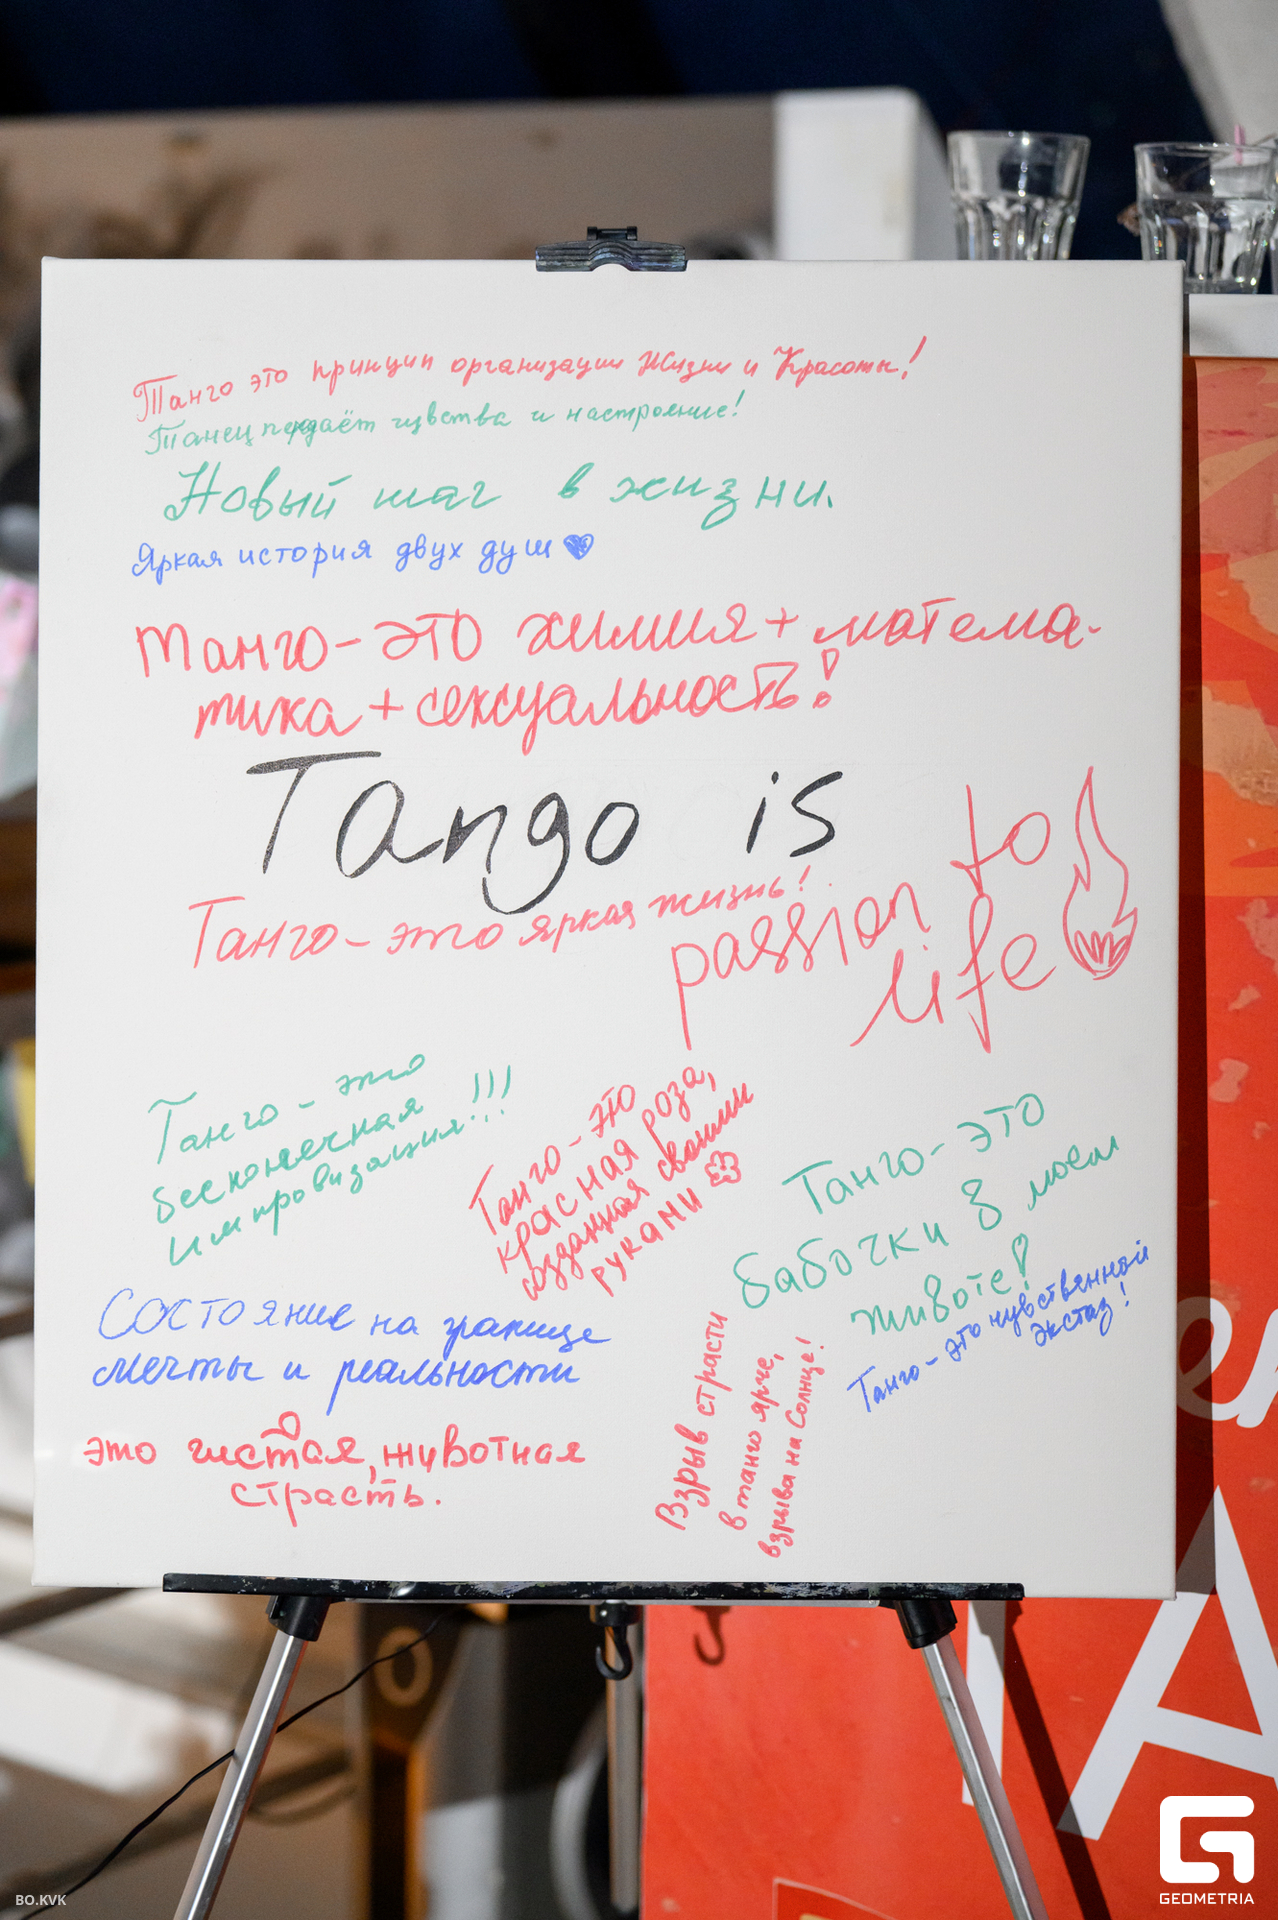 Танго это принцип организации Жизни и Красоты!
Танец передаёт чувства и настроение!
Новый шаг в жизни.
Яркая история двух душ
Танго - это химия + матема-
тика + сексуальность!
Tango is
Танго - это яркая жизнь!
passion to
life
Танго - это
бесконечная
импровизация!!!
Танго - это
красная роза,
созданная своими
руками
Танго - это
бабочки в моем
животе!
Танго - это чувственный
экстаз!
Состояние на границе
мечты и реальности
это чистая, животная
страсть.
Взрыв страсти
в танго ярче,
взрыва на Солнце!
A
GEOMETRIA
BO.KVK